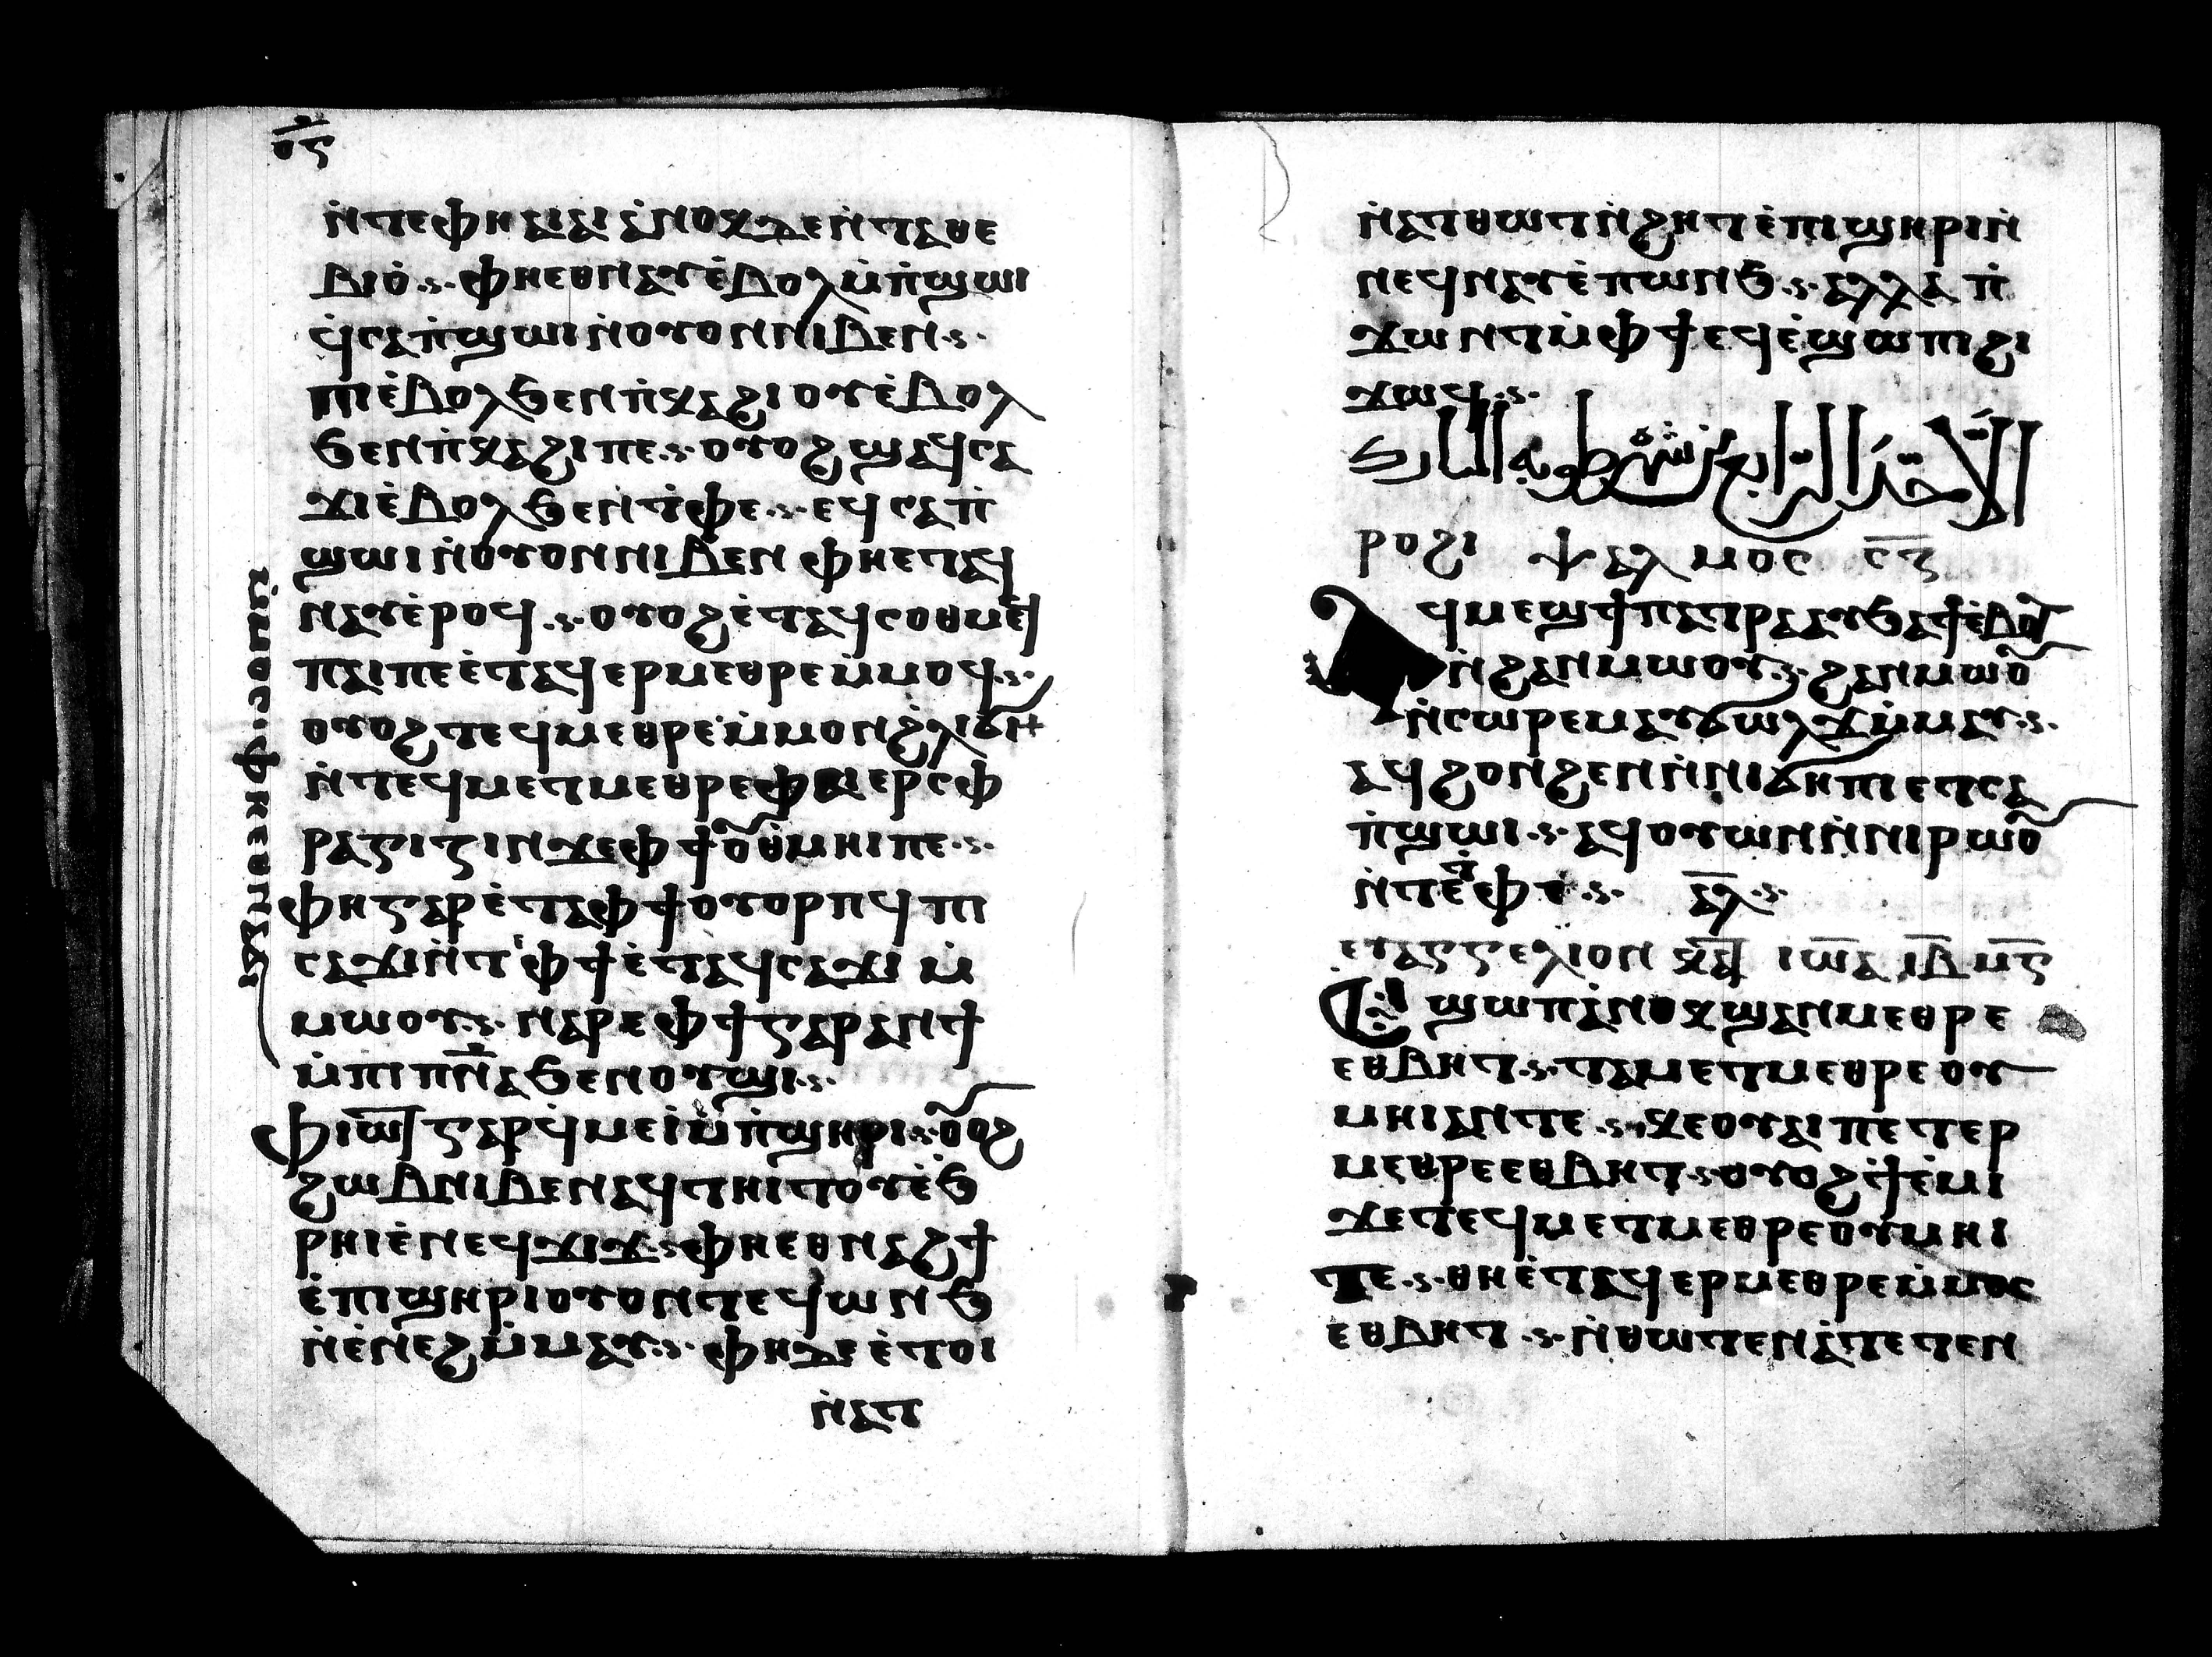 ⲟ̅ⲋ̅
ⲛ̀ⲧⲉⲫⲏ ⲁⲓⲁⲓ ⲁ̀ⲛⲟⲭⲇⲉⲛ̀ⲧⲁⲑⲉ
ⲃⲓⲟ̀·ⲫⲏⲉⲑⲛⲁⲩⲉ̀ⲃⲟⲗⲙ̀ⲡ̀ϣⲱⲓ
ϥ̀ⲥⲁⲡ̀ϣⲱⲓⲛ̀ⲟⲩⲟⲛⲛⲓⲃⲉⲛ·
ⲡⲓⲉ̀ⲃⲟⲗϧⲉⲛⲡ̀ⲭⲁϩⲓⲟⲩⲉ̀ⲃⲟⲗ
ϧⲉⲛⲡ̀ⲭⲁϩⲓⲡⲉ·ⲟⲩⲟϩϣⲁϥⲥⲁ
ϫⲓⲉ̀ⲃⲟⲗϧⲉⲛⲧ̀ⲫⲉ·ⲉϥⲥⲁⲡ̀
ϣⲱⲓⲛ̀ⲟⲩⲟⲛⲛⲓⲃⲉⲛ ⲫⲏⲉⲧⲁϥ
ⲛⲁⲩⲉ̀ⲣⲟϥ·ⲟⲩⲟϩⲉ̀ⲧⲁϥⲥⲟⲑⲙⲉϥ
ⲡⲁⲓⲡⲉⲉ̀ⲧⲁϥⲉⲣⲙⲉⲑⲣⲉⲙ̀ⲙⲟϥ·
ⲟⲩⲟϩⲧⲉϥⲙⲉⲑⲣⲉⲙ̀ⲙⲟⲛϩ̀ⲗⲓϭⲓ
ⲛ̀ⲧⲉϥⲙⲉⲧⲙⲉⲑⲣⲉⲫⲁⲓⲉⲣⲥⲫ
ⲣⲁⲅⲓⲍⲓⲛϫⲉⲫϯⲟⲩⲑ̀ⲙⲏⲓⲡⲉ·
ⲫⲏⲅⲁⲣⲉ̀ⲧⲁⲫϯⲟⲩⲟⲣⲡϥ ⲡⲓ
ⲥⲁϫⲓⲛ̀ⲧⲉⲫϯⲉ̀ⲧⲁϥⲥⲁϫⲓ ⲙ̀
ⲙⲱⲟⲩ·ⲛⲁⲣⲉⲫϯⲅⲁⲣⲁⲛϯ
ⲙ̀ⲡⲓⲡⲛ̅ⲁϧⲉⲛⲟⲩϣⲓ·
ⲫⲓⲱⲧⲅⲁⲣϥ̀ⲙⲉⲓⲙ̀ⲡ̀ϣⲏⲣⲓ·ⲟⲩⲟϩ
ϩⲱⲃⲛⲓⲃⲉⲛⲁϥⲧⲏⲓⲧⲟⲩⲉ̀ϧ
ⲣⲏⲓⲉ̀ⲛⲉϥϫⲓϫ·ⲫⲏⲉⲑⲛⲁϩϯ
ⲉ̀ⲡⲓϣⲏⲣⲓⲟⲩⲟⲛⲧⲉϥⲱⲛϧ
ⲛ̀ⲉ̀ⲛⲉϩⲙ̀ⲙⲁⲩ·ⲫⲏⲇⲉⲉ̀ⲧⲟⲓ
ⲛ̀ⲁⲧ
ⲙ̀ⲙⲟⲥ·ⲓⲫⲏⲉⲑⲛⲁϭⲓ
ⲛ̀ⲁⲧⲑⲱⲧⲛ̀ϩⲏⲧⲉ̀ⲡⲓϣⲏⲣⲓⲛ̀
ⲛⲉϥⲛⲁⲩⲉ̀ⲡⲱⲛϧ·ⲁⲗⲗⲁ ⲡ̀
ϫⲱⲛⲧⲙ̀ⲫϯⲉϥⲉ̀ϣⲱⲡⲓϩⲓ
ϫⲱϥ·
الاحد الرابع من شهر طوبه المبارك
ⲣⲟϩⲓ ⲯⲁⲗⲙⲟⲥ ⲥ̅ⲋ̅
ⲁϥⲙⲉϣϯⲡⲁⲧⲣⲁⲁⲩϧⲁϯⲉ̀ⲃⲟⲗ
ⲛ̀ϩⲁⲛⲙⲱⲟⲩ·ϩⲁⲛⲙⲱⲟⲩ
ⲛ̀ⲥⲱⲣⲉⲙⲁⲩϭⲱⲗϫⲙ̀ⲙⲁⲩ·
ⲁϥϩⲟⲛϩⲉⲛⲛ̀ⲛⲓϭⲏⲡⲓⲉⲧⲥⲁ
ⲡ̀ϣⲱⲓ·ⲁϥⲟⲩⲱⲛⲛ̀ⲛⲓⲣⲱⲟⲩ
ⲛ̀ⲧⲉⲧ̀ⲫⲉ· ⲁ̅ⲗ̅·
ⲉⲩⲁⲅⲅⲉⲗⲓⲟⲛ ⲭⲁ ⲓⲱ̅ⲁ ⲓ̅ⲃ̅ ⲙ̅ⲋ̅
ⲉ̀ϣⲱⲡⲁ̀ⲛⲟⲭϣⲁⲛⲙⲉⲑⲣⲉ
ⲉⲑⲃⲏⲧ·ⲧⲁⲙⲉⲧⲙⲉⲑⲣⲉ ⲟⲩ
ⲙⲏⲓⲁⲛⲧⲉ·ⲭⲉⲟⲩⲁⲓⲡⲉⲧⲉⲣ
ⲙⲉⲑⲣⲉⲉⲑⲃⲏⲧ·ⲟⲩⲟϩϯⲉ̀ⲙⲓ
ϫⲉⲧⲉϥⲙⲉⲧⲙⲉⲑⲣⲉⲟⲩⲙⲏⲓ
ⲧⲉ·ⲑⲏⲉ̀ⲧⲁϥⲉⲣⲙⲉⲑⲣⲉⲙ̀ⲙⲟⲥ
ⲉⲑⲃⲏⲧ·ⲛ̀ⲑⲱⲧⲉⲛⲁ̀ⲧⲉⲧⲉⲛ